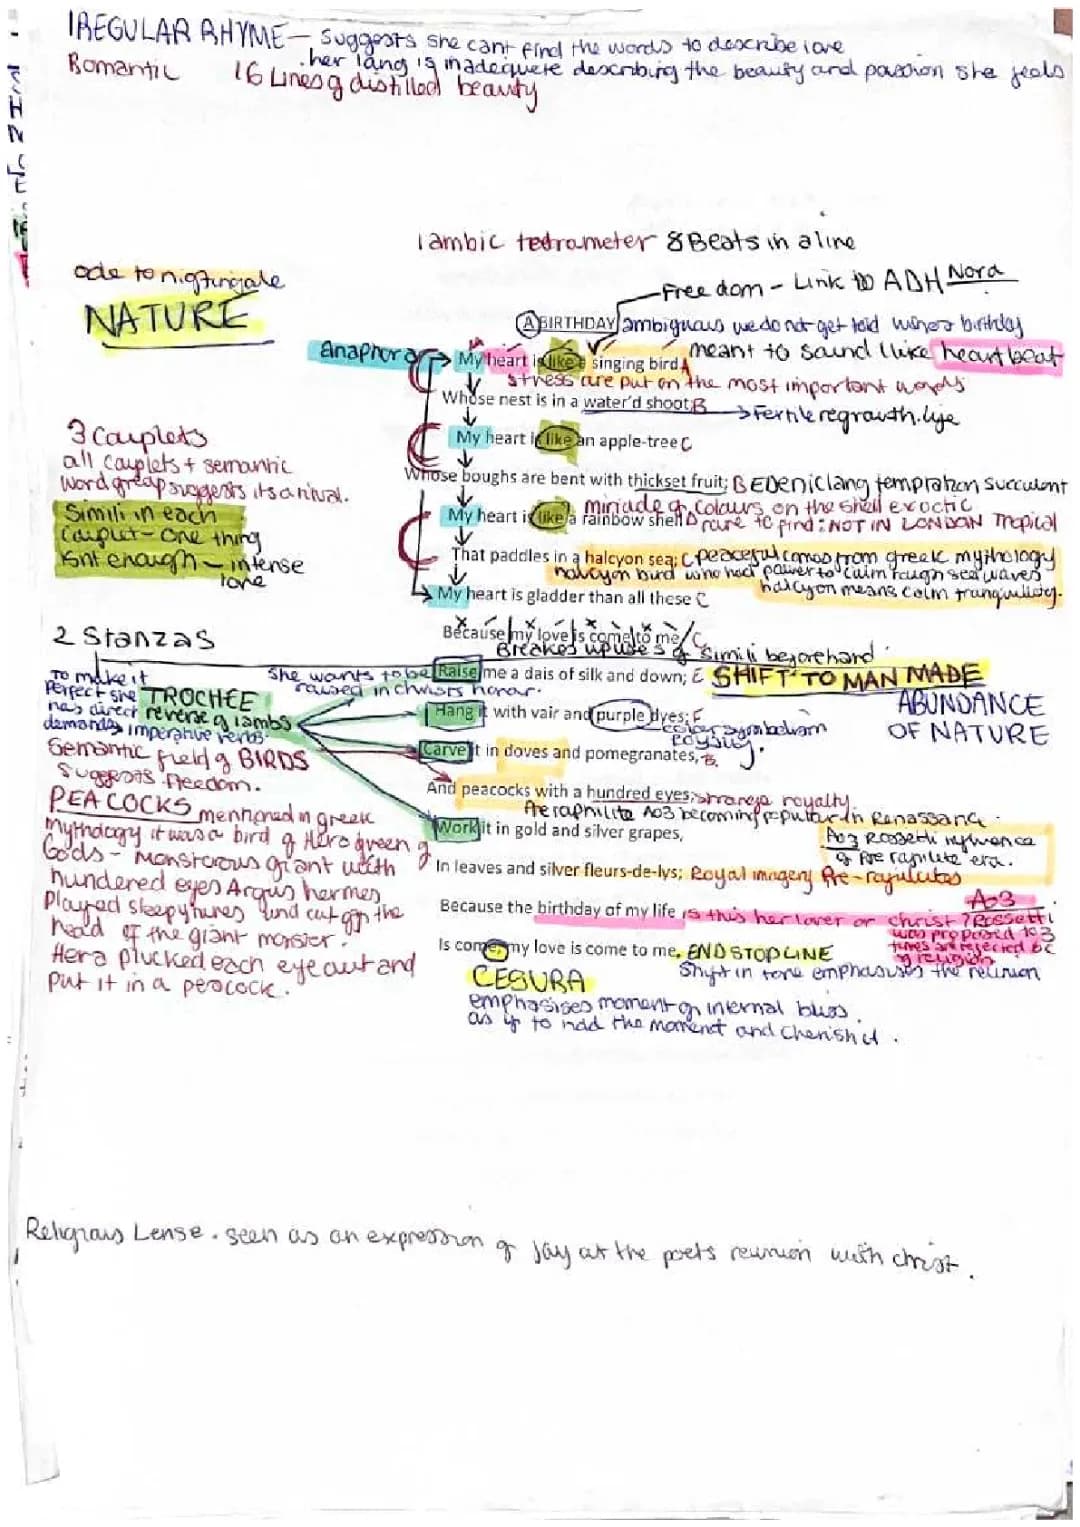 IREGULAR RHYME — suggests she cant find the words to describe love
. her lang is inadequete describing the beauty and passion she feels
Romantic 16 Lines of distilled beauty
Iambic tedrameter 8 Beats in a line
ode to nightingale
NATURE
Freedom - Link to ADH Nora
A BIRTHDAY ambiguous we do not get told whos birthday
Anaphora
My heart is like a singing bird A meant to sound like heart beat
stress are put on the most important words
Whose nest is in a water'd shoot; B → Fertile regrowth. life
My heart is like an apple-tree C
Whose boughs are bent with thickset fruit; B EDENIC lang tempration succulent
My heart is like a rainbow shell D
miriade of colours on the shell exoctic
rare to find: NOT IN LONDON Tropical
That paddles in a halcyon sea; C peaceful comes from greek mythology
halcyon bird who had power to calm rough sea waves
halcyon means calm tranquility.
My heart is gladder than all these C
Because my love is come to me. C
Breakes up use of simili beforehand
3 Couplets
all couplets + semantic
word group suggests its arrival.
Simili in each
couplet - One thing
isnt enough - intense
love
2 Stanzas
Raise me a dais of silk and down; E SHIFT TO MAN MADE
She wants to be
raised in christs honor.
ABUNDANCE
OF NATURE
Hang it with vair and purple dyes; F
color symbolism
Carve it in doves and pomegranates, B.
And peacocks with a hundred eyes; strange royalty.
Preraphilite Ao3 becoming popular in Renassance.
Work it in gold and silver grapes,
Ao3 Rossetti influence
of Pre rafilite era.
In leaves and silver fleurs-de-lys; Royal imagery Pre-rafulutes
Because the birthday of my life is this her lover or christ? Rossetti
Ao3
was proposed to 3
times and rejected bc
of religion
Is come, my love is come to me. END STOP LINE
Shift in tone emphasises the reunion
CESURA
emphasises moment of internal bliss.
as if to hold the moment and cherish it.
To make it
perfect she
has direct
demands imperative verbs
TROCHEE
reverse of iambs
Semantic field of BIRDS
suggests freedom.
PEACOCKS mentioned in greek
mythology it was a bird of Hera queen of
Gods - Monstorous giant with
hundered eyes Argus hermes
Played sleepy tunes and cut off the
head of the giant monster.
Hera plucked each eye out and
put it in a peacock.
Religious Lense. seen as an expression of joy at the poets reunion with christ.